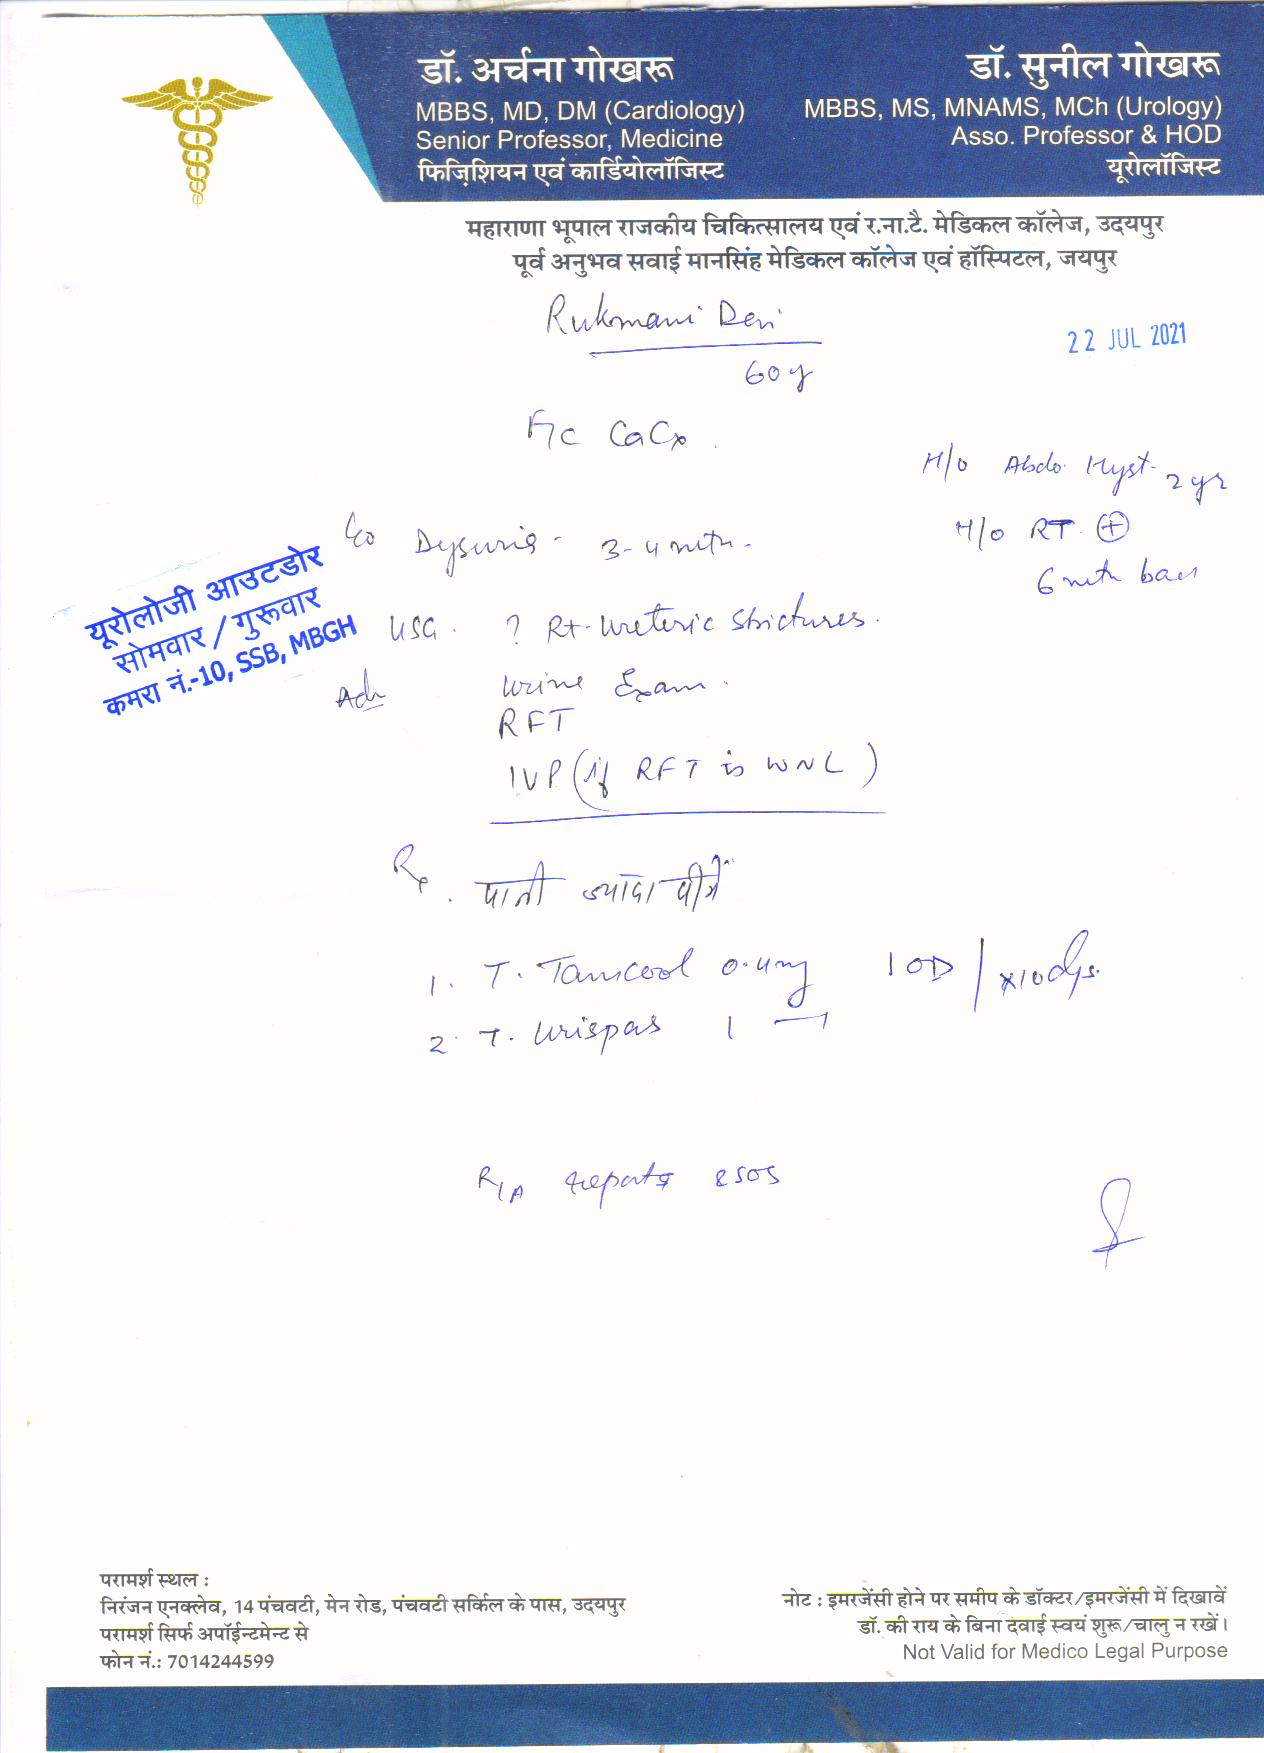 डॉ. अर्चना गोखरू
MBBS, MD, DM (Cardiology)
Senior Professor, Medicine
फिज़िशियन एवं कार्डियोलॉजिस्ट
डॉ. सुनील गोखरू
MBBS, MS, MNAMS, MCh (Urology)
Asso. Professor & HOD
यूरोलॉजिस्ट
महाराणा भूपाल राजकीय चिकित्सालय एवं र.ना.टै. मेडिकल कॉलेज, उदयपुर
पूर्व अनुभव सवाई मानसिंह मेडिकल कॉलेज एवं हॉस्पिटल, जयपुर
Rukmani Devi
22 JUL 2021
60 y
F/c CaCx
H/o Abdo. Hyst. 2 yr
H/o RT ⊕
6 mth back
C/o Dysuria - 3-4 mth.
यूरोलोजी आउटडोर
सोमवार / गुरूवार
कमरा नं.-10, SSB, MBGH
USG. ? Rt. Ureteric Strictures.
Adv Urine Exam.
RFT
IVP (if RFT is WNL)
Rx
. पानी ज्यादा पीयें
1. T. Tamcool 0.4mg 1 OD / x10dys.
2. T. Urispas 1
R/A reports & SOS
परामर्श स्थल :
निरंजन एनक्लेव, 14 पंचवटी, मेन रोड, पंचवटी सर्किल के पास, उदयपुर
परामर्श सिर्फ अपॉईन्टमेन्ट से
फोन नं.: 7014244599
नोट : इमरजेंसी होने पर समीप के डॉक्टर/इमरजेंसी में दिखावें
डॉ. की राय के बिना दवाई स्वयं शुरू/चालु न रखें।
Not Valid for Medico Legal Purpose